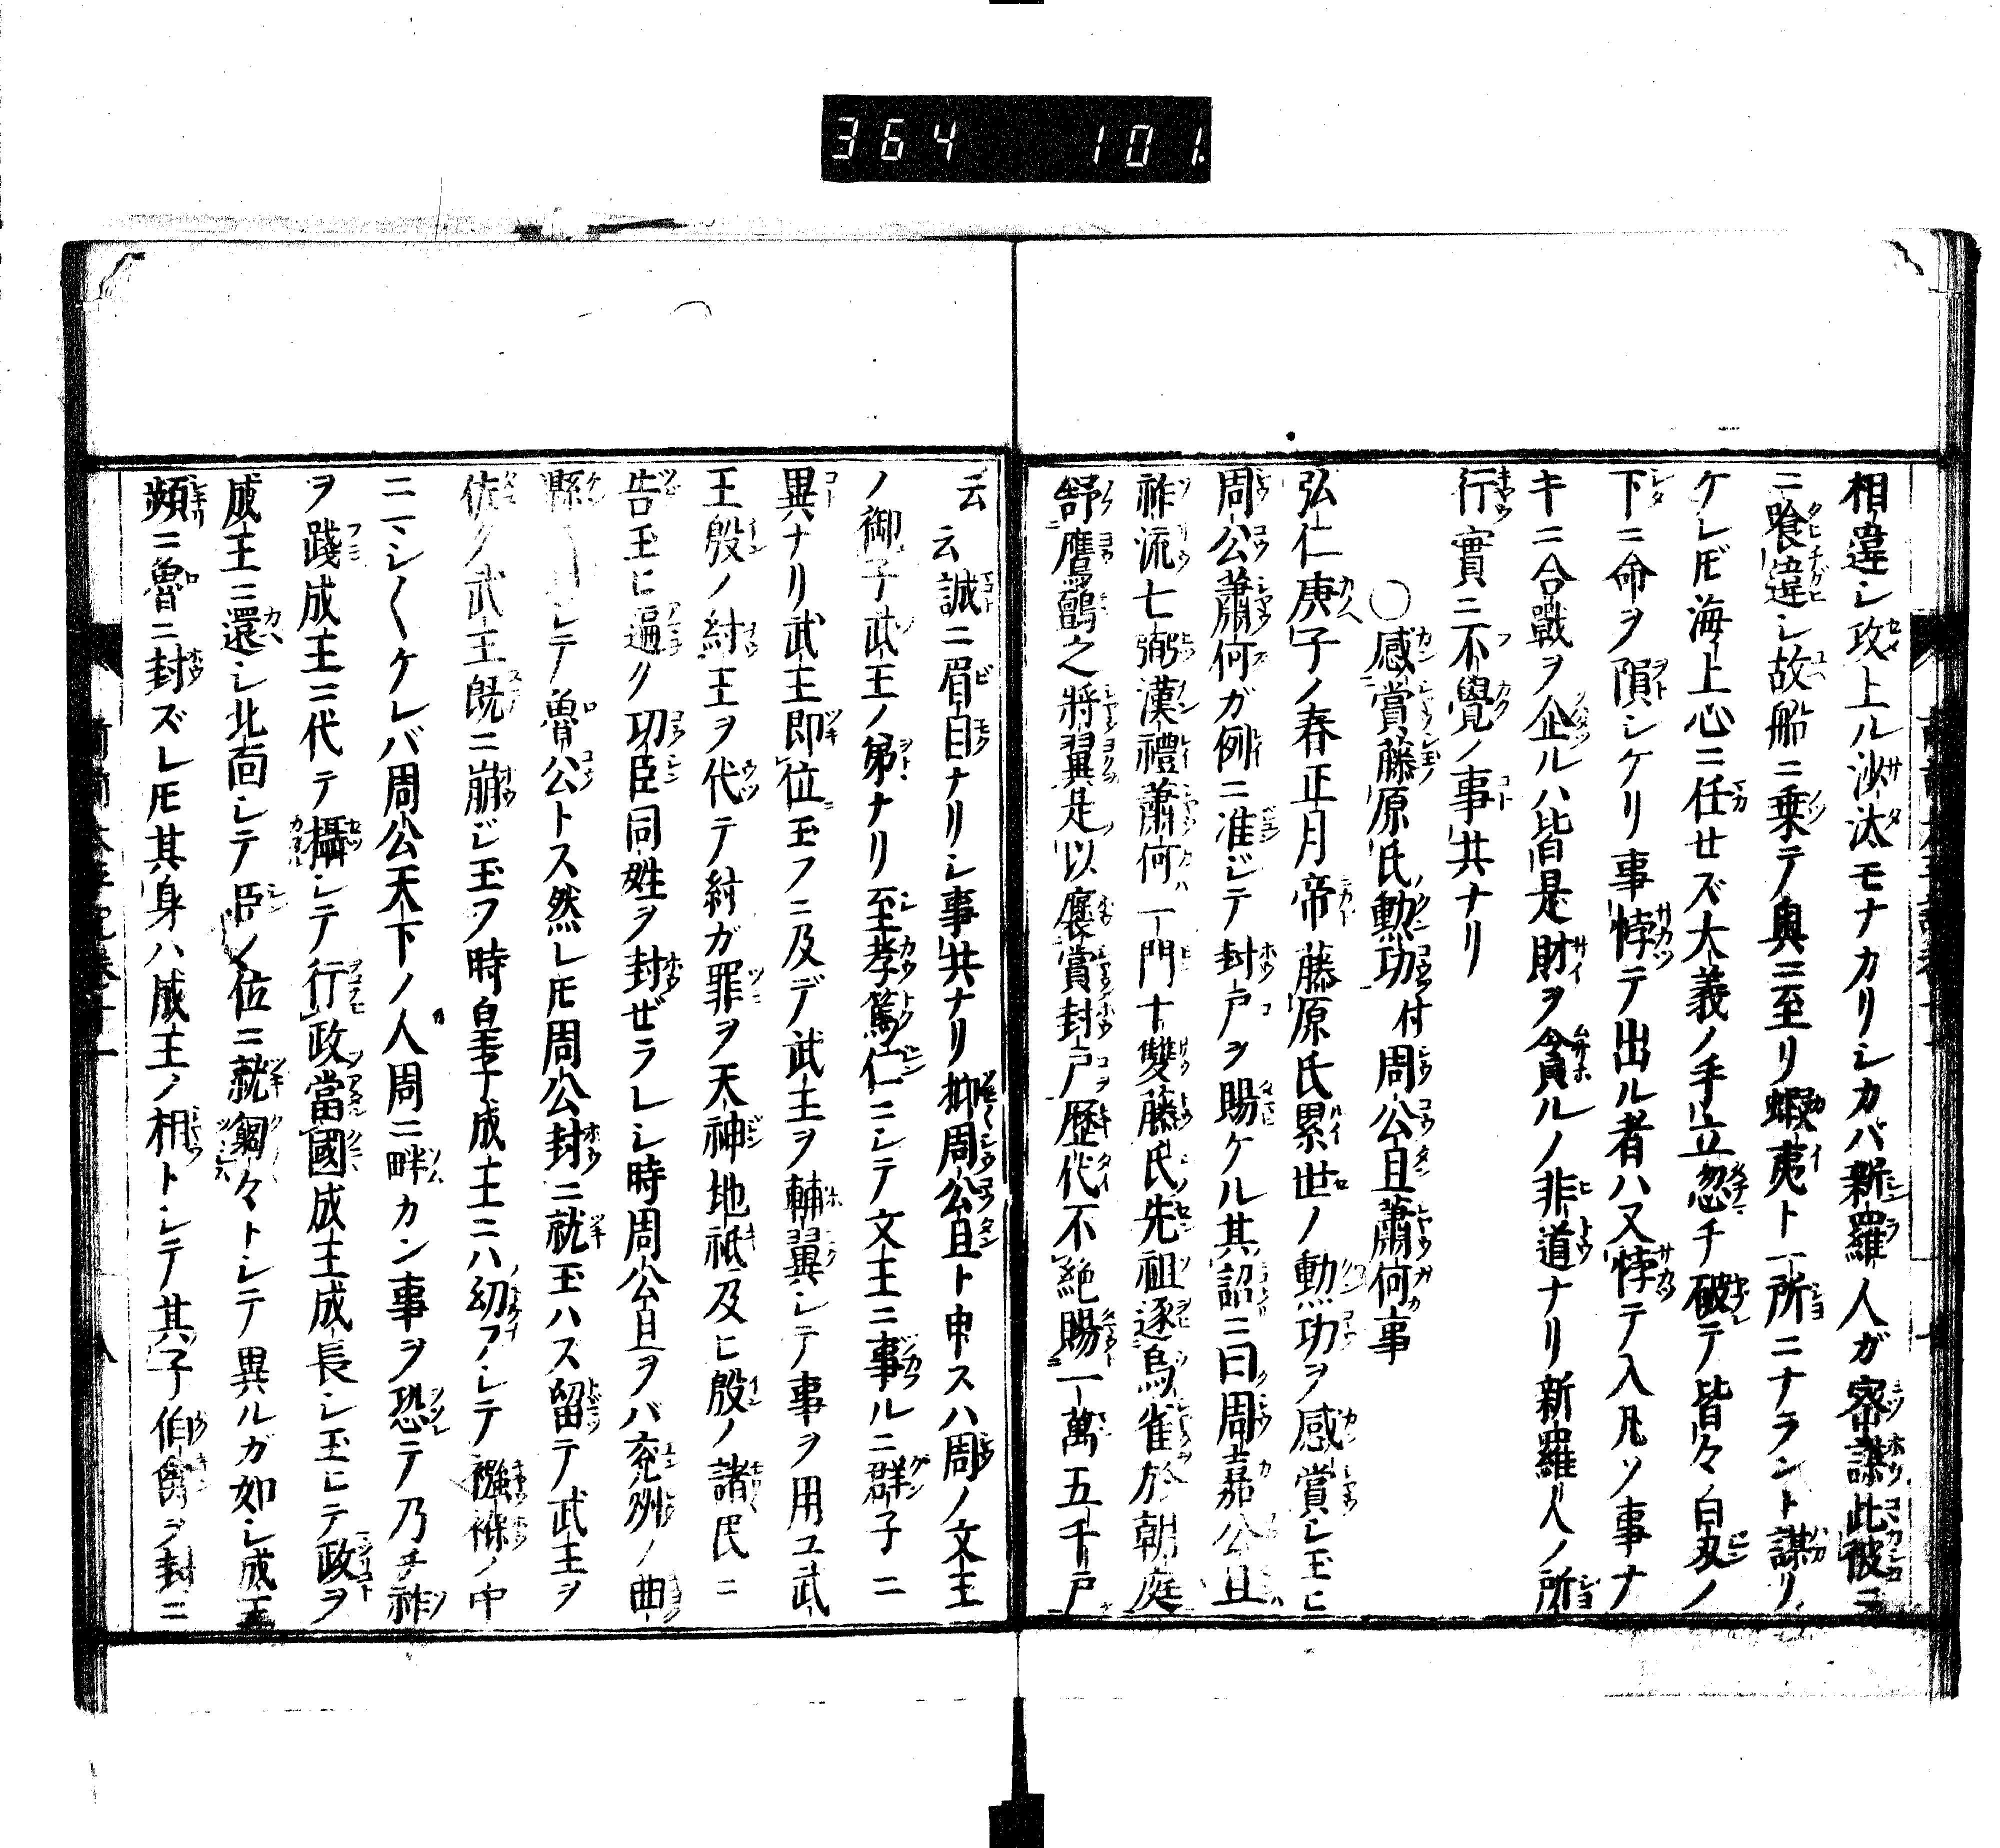 364 101
相違シ攻上ル沙汰モナカリシカバ新羅人ガ密謀此彼ニ
ニ喰違シ故船ニ乗テ奥ニ至リ蝦夷ト一所ニナラント謀リ
ケレ𪜈海上心ニ任セズ大義ノ手立忽チ破テ皆々白刄ノ
下ニ命ヲ隕シケリ事悖テ出ル者ハ又悖テ入凡ソ事ナ
キニ合戰ヲ企ルハ皆是財ヲ貪ルノ非道ナリ新羅人ノ所
行實ニ不覺ノ事共ナリ
〇感賞藤原氏勳功付周公旦蕭何事
弘仁庚子ノ春正月帝藤原氏累世ノ勲功ヲ感賞シ玉ヒ
周公蕭何ガ例ニ准ジテ封戸ヲ賜ケル其詔ニ曰周嘉公旦
祚流七弼漢禮蕭何一門十雙藤氏先祖逐烏雀於朝庭
舒鷹鸇之將翼是以褒賞封戸歷代不絶賜一萬五千戸
云云誠ニ眉目ナリシ事共ナリ抑周公旦ト申スハ周ノ文王
ノ御子武王ノ弟ナリ至孝篤仁ニシテ文王ニ事ルニ群子ニ
異ナリ武王即位玉フニ及デ武王ヲ輔翼シテ事ヲ用ユ武
王殷ノ紂王ヲ代テ紂ガ罪ヲ天神地祗及ヒ殷ノ諸民ニ
告玉ヒ遍ク功臣同姓ヲ封ぜラレシ時周公旦ヲバ兗州ノ曲
縣 シテ魯公トス然レ𪜈周公封ニ就玉ハス留テ武王ヲ
佐ク武王既ニ崩ジ玉フ時皇子成王ニハ幼フシテ襁褓ノ中
ニマシ〱ケレバ周公天下ノ人周ニ畔カン事ヲ恐テ乃チ祚
ヲ踐成王ニ代テ攝シテ行政當國成王成長シ玉ヒテ政ヲ
成王ニ還シ北面シテ臣ノ位ニ就匑々トシテ異ルガ如シ成王
頻ニ魯ニ封ズレ𪜈其身ハ成王ノ相トシテ其子伯禽ヲ封ニ